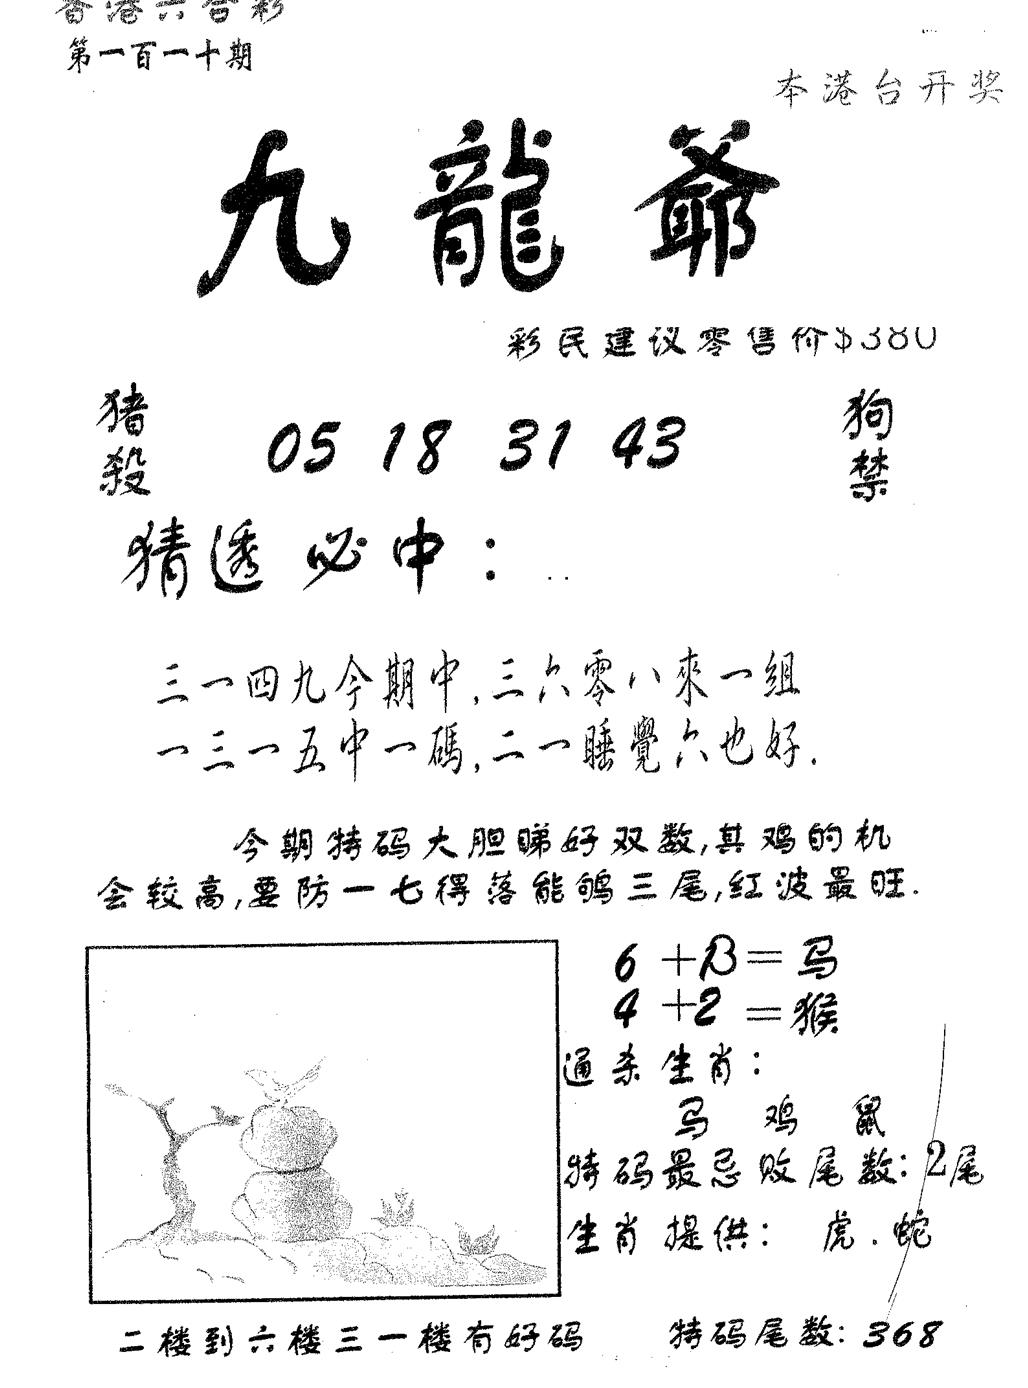 香港六合彩
第一百一十期
本港台开奖
九龍爺
彩民建议零售价$380
猪殺
05 18 31 43
狗禁
猜透必中:
三一四九今期中,三六零八來一組
一三一五中一碼,二一睡覺六也好.
今期特码大胆睇好双数,其鸡的机
会较高,要防一七得落能鸲三尾,红波最旺.
6+B=马
4+2=猴
通杀生肖:
马 鸡 鼠
特码最忌败尾数:2尾
生肖提供: 虎.蛇
二楼到六楼三一楼有好码
特码尾数:368